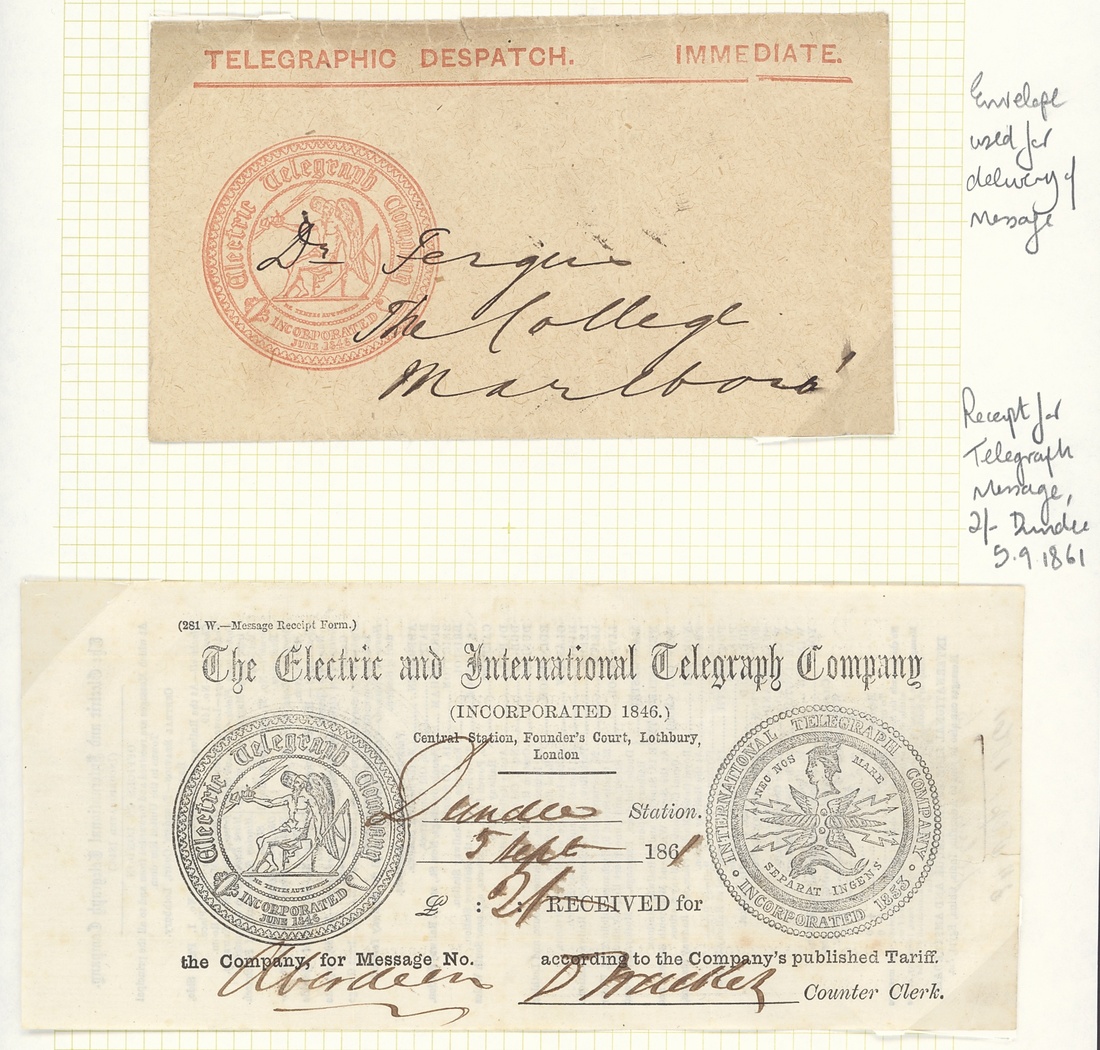 TELEGRAPHIC DESPATCH. IMMEDIATE.
Electric Telegraph Company
INCORPORATED
JUNE 1846
Dr Fergus
The College
Marlboro'
Envelope
used for
delivery of
Message
Receipt for
Telegraph
Message,
2/- Dundee
5.9.1861
(281 W.—Message Receipt Form.)
The Electric and International Telegraph Company
(INCORPORATED 1846.)
Central Station, Founder's Court, Lothbury,
London
Electric Telegraph Company
INCORPORATED
JUNE 1846
INTERNATIONAL TELEGRAPH COMPANY
NEC NOS MARE
SEPARAT INGENS
INCORPORATED 1853
Dundee Station.
5 Sept 1861
£ : 2/ : RECEIVED for
the Company, for Message No. according to the Company's published Tariff.
Aberdeen
Counter Clerk.